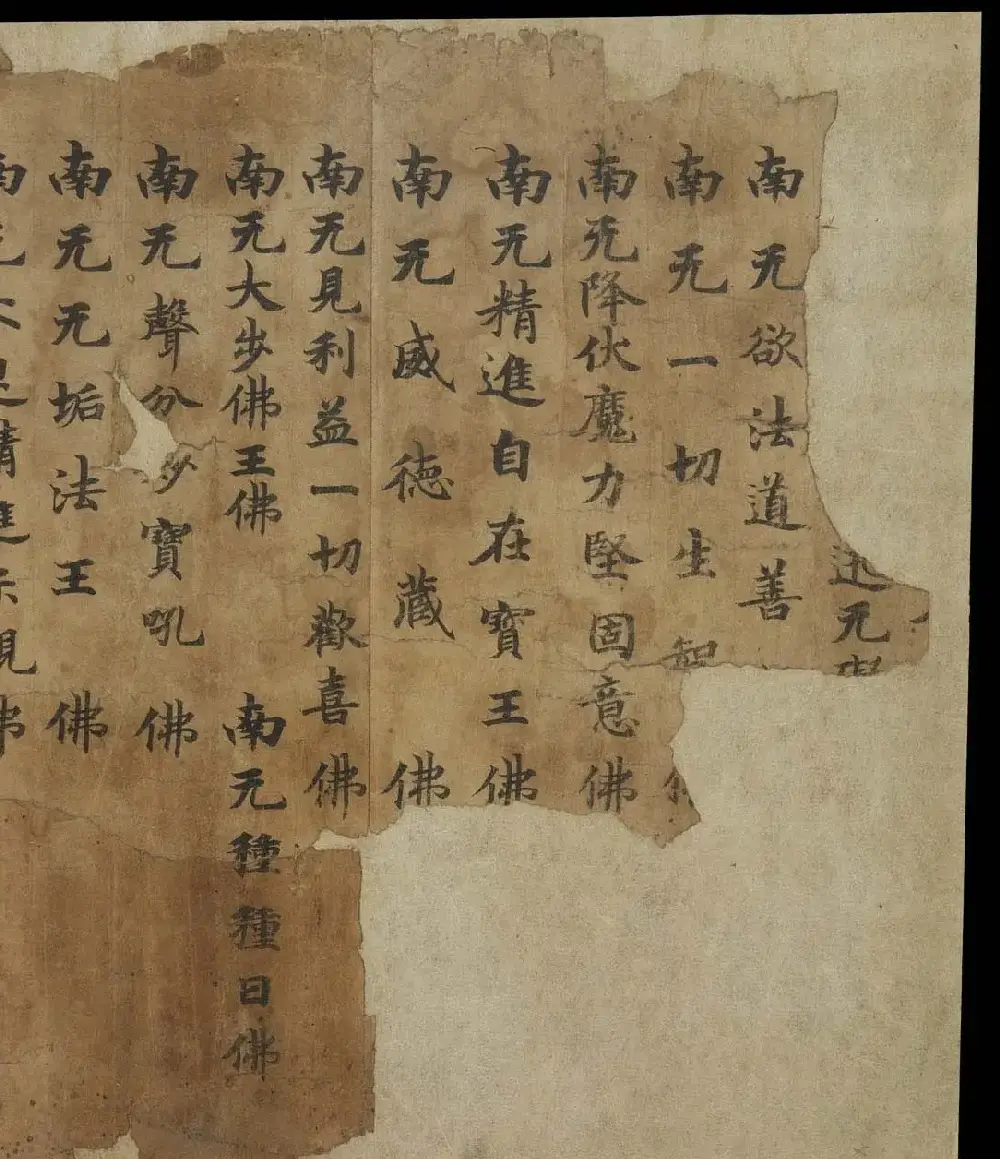 迅无
南无欲法道善
南无一切生智
南无降伏魔力堅固意佛
南无精進自在寶王佛
南无威德藏佛
南无見利益一切歡喜佛
南无大步佛王佛 南无種種日佛
南无聲分妙寶吼佛
南无无垢法王佛
南无精進示現佛